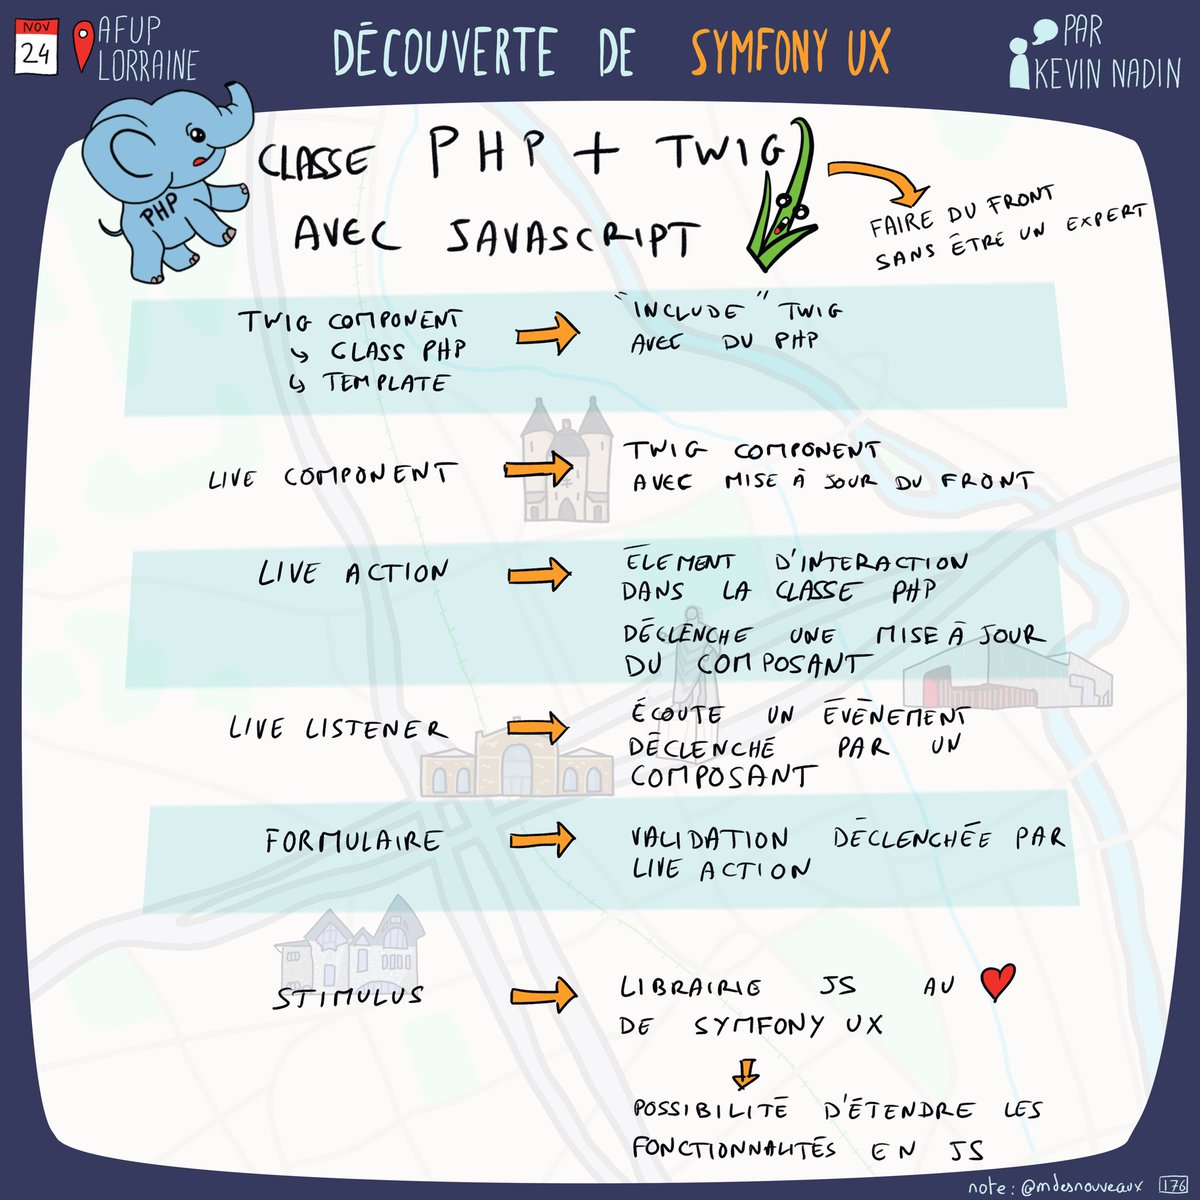 NOV
24
AFUP
LORRAINE
DÉCOUVERTE DE SYMFONY UX
PAR
KEVIN NADIN
PHP
CLASSE PHP + TWIG
AVEC JAVASCRIPT
FAIRE DU FRONT
SANS ÊTRE UN EXPERT
TWIG COMPONENT
↳ CLASS PHP
↳ TEMPLATE
"INCLUDE" TWIG
AVEC DU PHP
LIVE COMPONENT
TWIG COMPONENT
AVEC MISE À JOUR DU FRONT
LIVE ACTION
ÉLEMENT D'INTERACTION
DANS LA CLASSE PHP
DÉCLENCHE UNE MISE À JOUR
DU COMPOSANT
LIVE LISTENER
ÉCOUTE UN ÉVÉNEMENT
DÉCLENCHÉ PAR UN
COMPOSANT
FORMULAIRE
VALIDATION DÉCLENCHÉE PAR
LIVE ACTION
STIMULUS
LIBRAIRIE JS AU ❤
DE SYMFONY UX
POSSIBILITÉ D'ÉTENDRE LES
FONCTIONNALITÉS EN JS
note : @mdesnouveaux 176